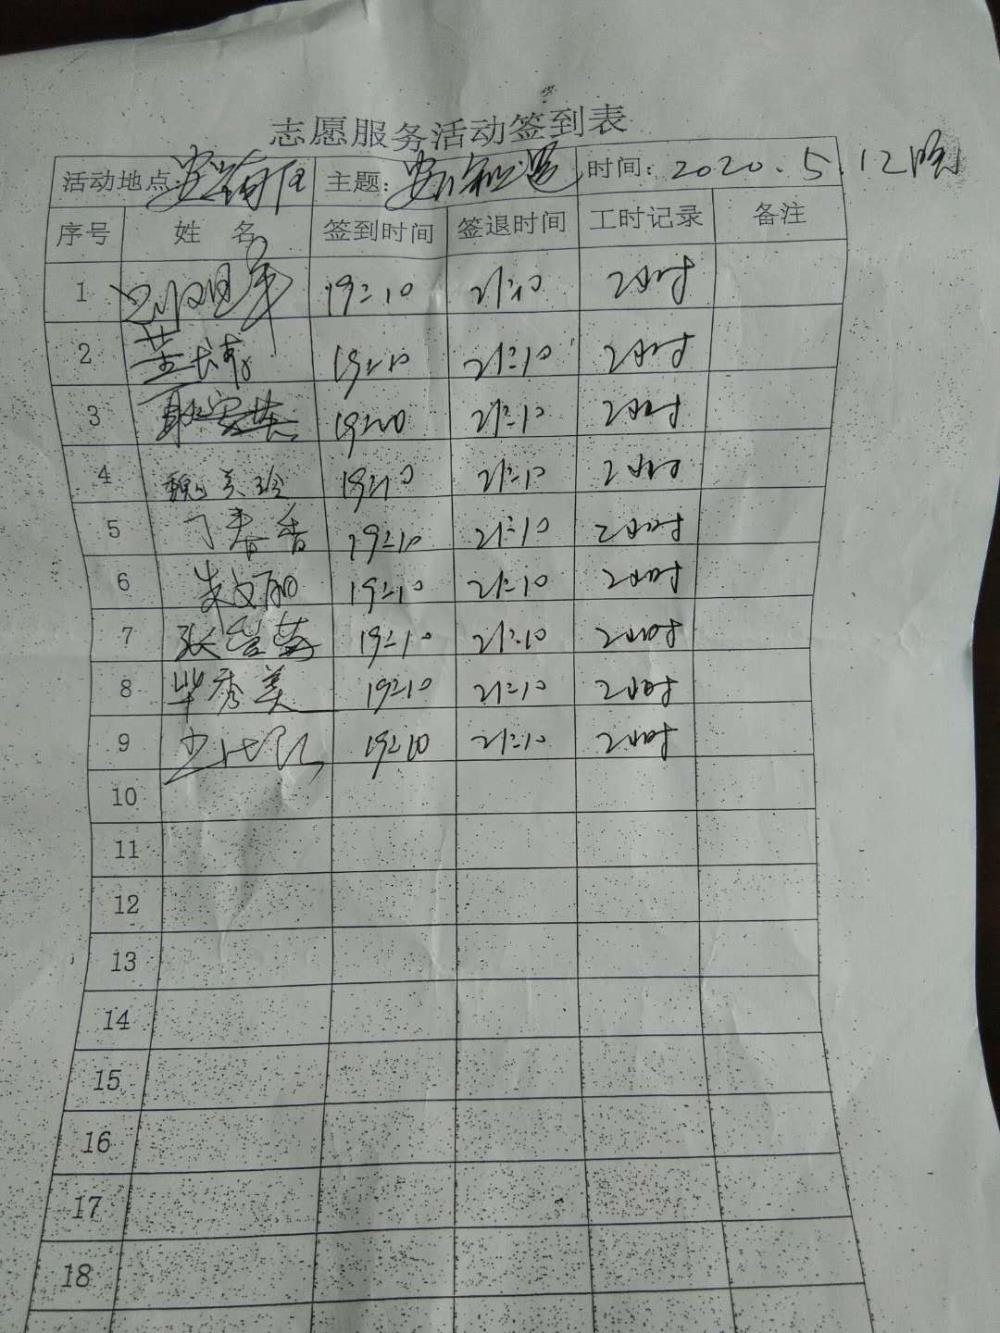 志愿服务活动签到表
活动地点: 主题: 时间: 2020.5.12晚
序号 姓名 签到时间 签退时间 工时记录 备注
1 19:10 21:10 2小时
2 19:10 21:10 2小时
3 19:10 21:10 2小时
4 魏美玲 19:10 21:10 2小时
5 丁春香 19:10 21:10 2小时
6 朱文丽 19:10 21:10 2小时
7 19:10 21:10 2小时
8 毕秀美 19:10 21:10 2小时
9 19:10 21:10 2小时
10
11
12
13
14
15
16
17
18